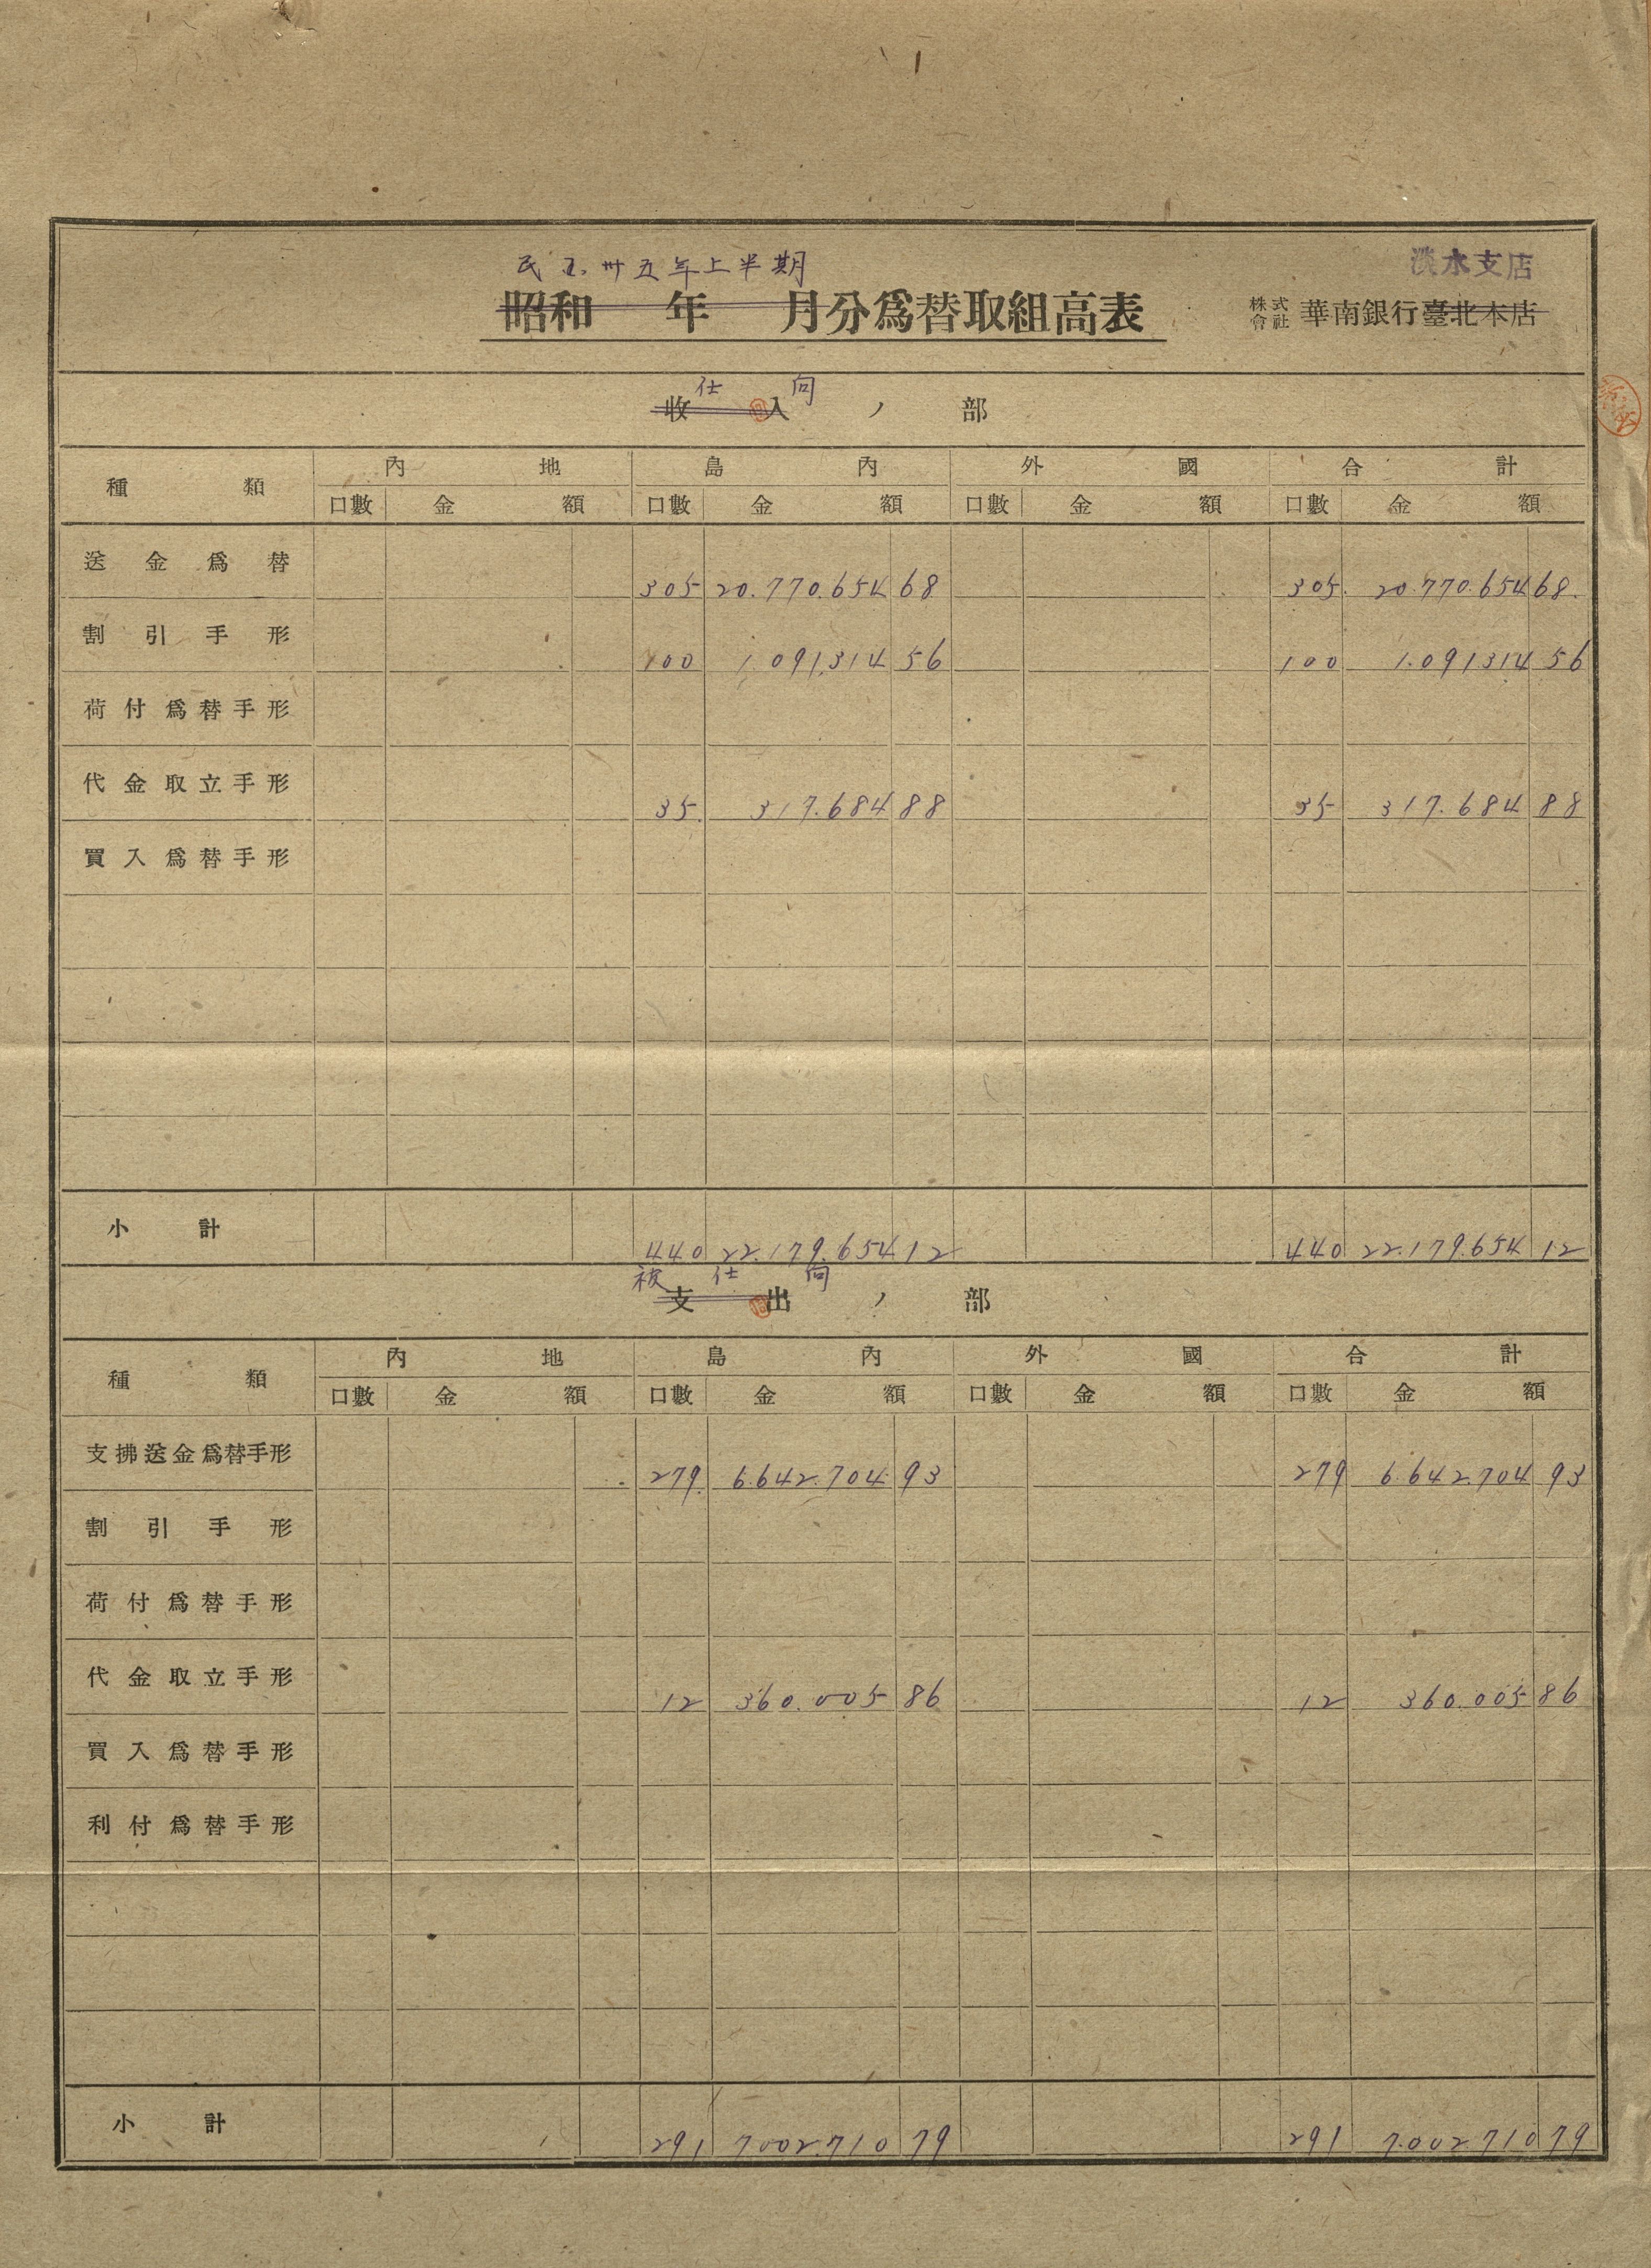 民國卅五年上半期
淡水支店
昭和 年 月分爲替取組高表
株式會社 華南銀行臺北本店
仕向
收入ノ部
種類 內地 島內 外國 合計
口數 金額 口數 金額 口數 金額 口數 金額
送金爲替 305 20.770.654 68 305. 20.770.654 68.
割引手形 100 1.091.314 56 100 1.091314 56
荷付爲替手形
代金取立手形 35. 317.684 88 35 317.684 88
買入爲替手形
小計 440 22.179.654 12 440 22.179.654 12
被仕向
支出ノ部
種類 內地 島內 外國 合計
口數 金額 口數 金額 口數 金額 口數 金額
支拂送金爲替手形 279. 6.642.704. 93 279 6.642.704 93
割引手形
荷付爲替手形
代金取立手形 12 360.005 86 12 360.005 86
買入爲替手形
利付爲替手形
小計 291 7002.710 79 291 7.002710 79